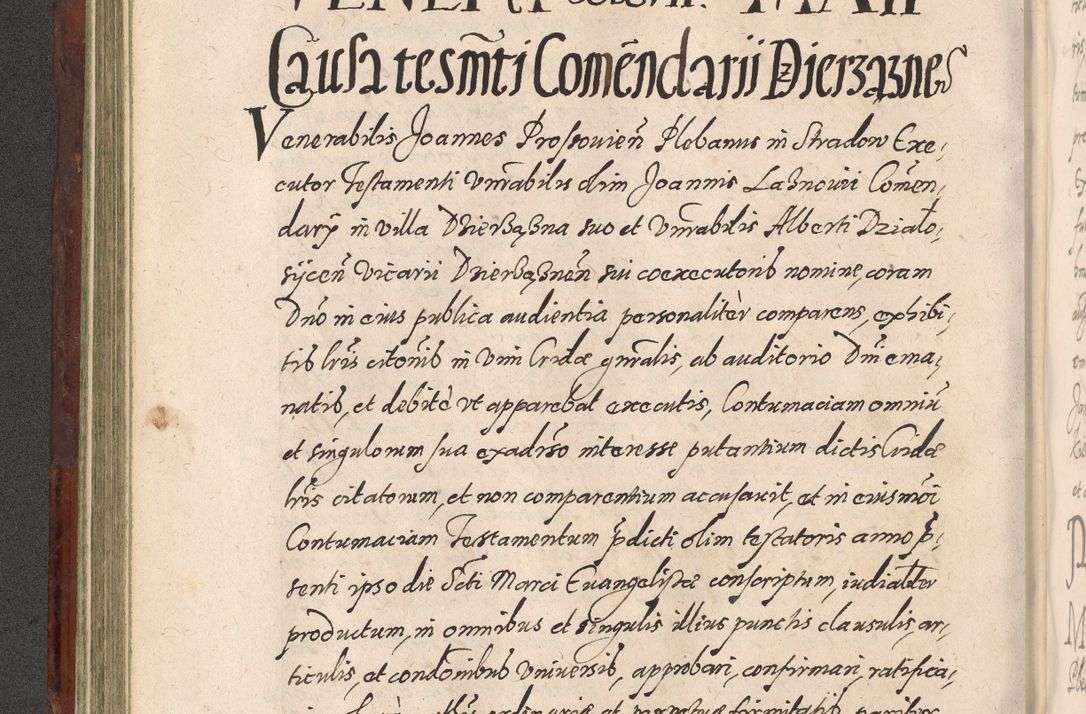 Causa tesm̃ti Comẽndarii Dzierzązneń
Venerabilis Joannes Prossouień Plebanus in Stradow Exe,
cutor Testamenti Vnr̃abilis olim Joannis Laznowii Comẽn,
darÿ in villa Dzierzązna suo et Vnr̃abilis Alberti Działo,
sÿceń Vicarii Dzierząznen̄ sui coexecutoris nomine, coram
Dño in eius publica audientia personalitèr comparens, exhibi,
tis lr̃is citoñis in vim Cridæ gnr̃alis, ab auditorio Dñi ema,
natis, et debitè vt apparebat executis, Contumaciam omniũ
et singulorum sua exadr̃so interesse putantium dictis Cridæ
lr̃is citatorum, et non comparentium accusauit, et in eiusmõi
Contumaciam Testamentum p̃dicti olim testatoris anno p̃,
senti ipso die Scti Marci Euangelistæ conscriptum, iudialiter
productum, in omnibus et singulis illius punctis clausulis, ar,
ticulis, et condõnibus vniuersis, approbari, confirmari, ratifica,